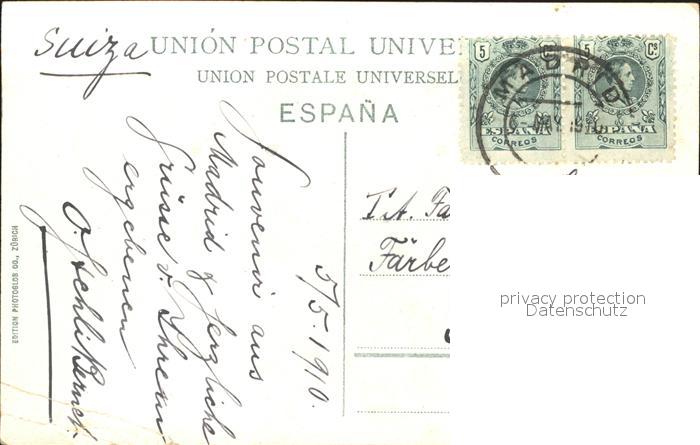 Suiza
UNIÓN POSTAL UNIVE
UNION POSTALE UNIVERSEL
ESPAÑA
5 Cs
5 Cs
ESPAÑA
CORREOS
ESPAÑA
CORREOS
MADRID
5/5. 1910.
Souvenir aus
Madrid & herzliche
Grüsse v. Ihrem
ergebenen
O.
Tit. Fa
Färbe
privacy protection
Datenschutz
EDITION PHOTOGLOB CO., ZÜRICH